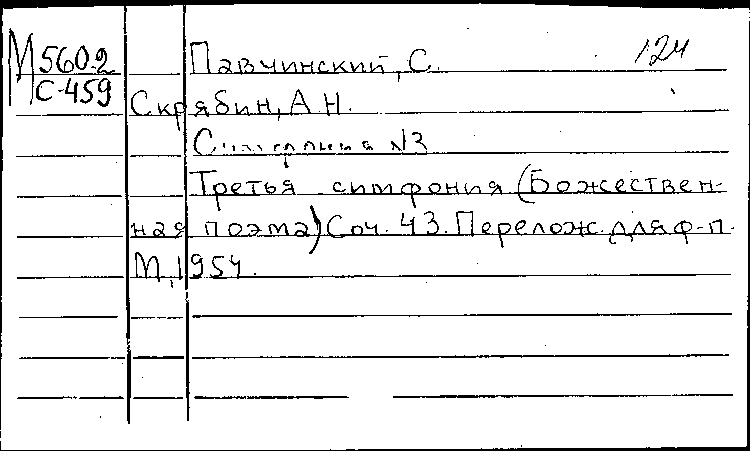 М560.2 Павчинский, С. 124
С-459
Скрябин, А.Н.
№3
Третья симфония (Божествен-
ная поэма) Соч. 43. Перелож. для ф-п.
М, 1954.